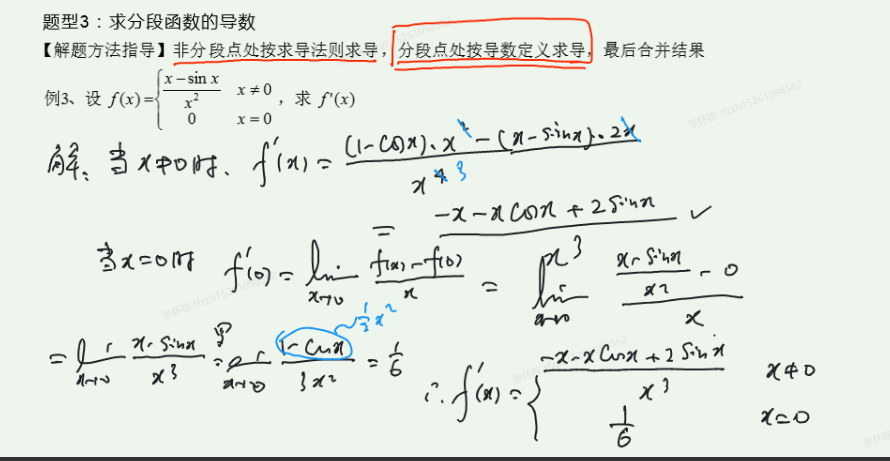 题型3：求分段函数的导数
【解题方法指导】非分段点处按求导法则求导，分段点处按导数定义求导，最后合并结果
例3、设 f(x)={ (x−sin x)/x² x≠0 ; 0 x=0 ，求 f'(x)
解：当x≠0时、f'(x) = ((1-cosx)·x² - (x-sinx)·2x)/x⁴ 3
= (-x-xcosx+2sinx)/x³ ✓
当x=0时 f'(0) = lim x→0 (f(x)-f(0))/x = lim x→0 ((x-sinx)/x² - 0)/x
= lim x→0 (x-sinx)/x³ = lim x→0 (1-cosx)/3x² = 1/6 ~ 1/2 x²
∴ f'(x) = { (-x-xcosx+2sinx)/x³ x≠0 ; 1/6 x=0